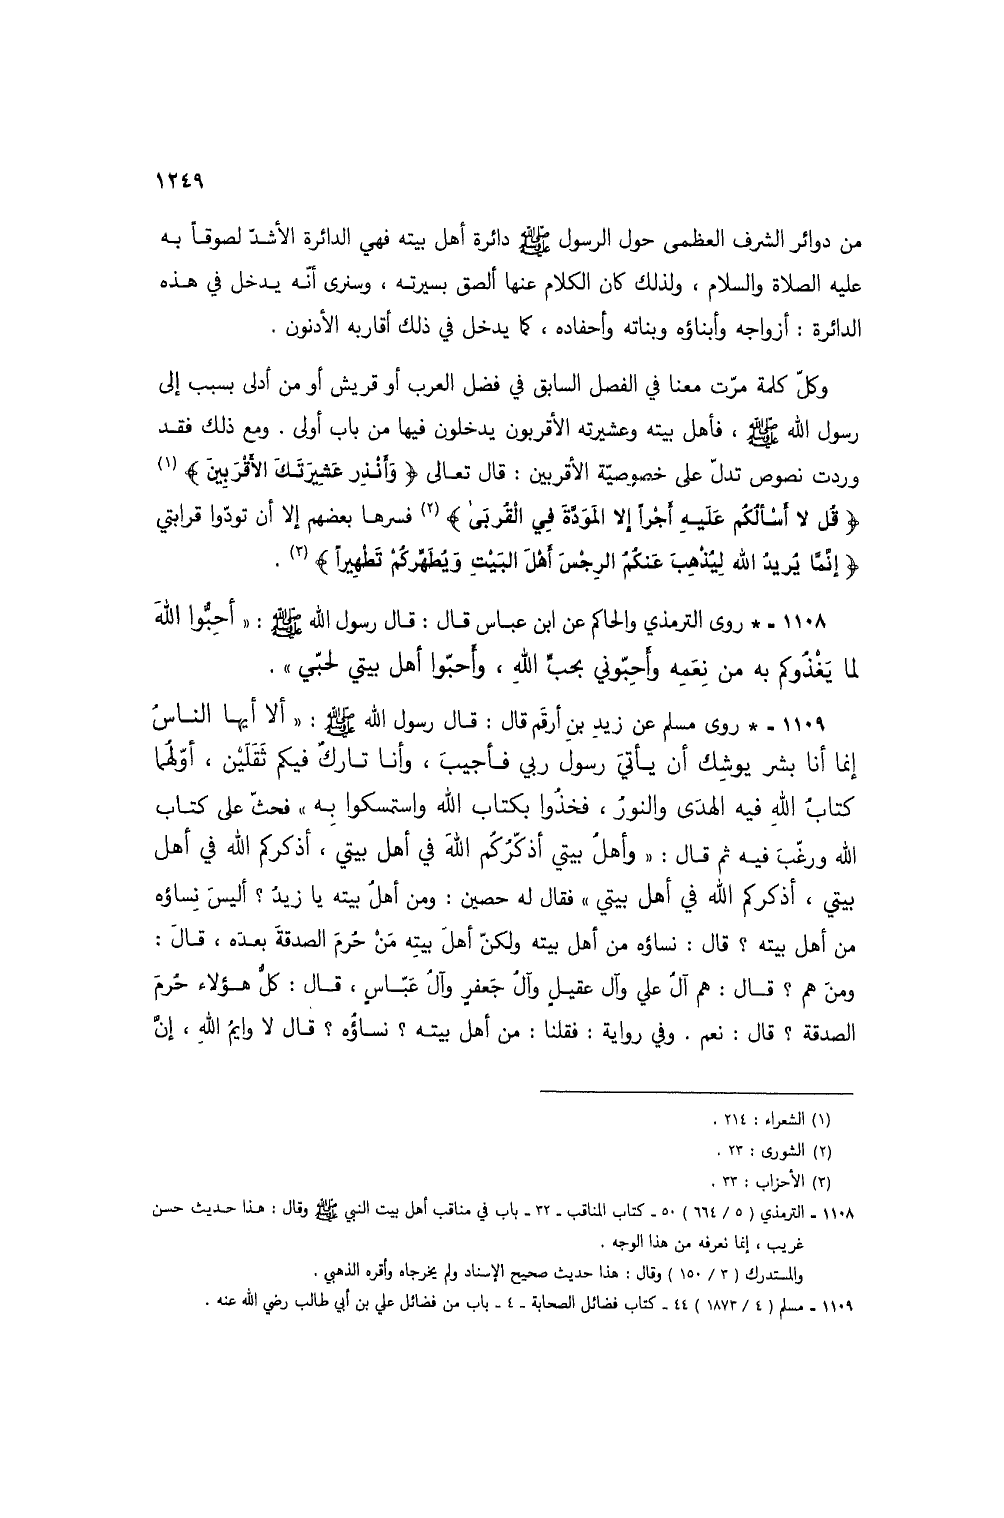 ١٢٤٩
من دوائر الشرف العظمى حول الرسول ﷺ دائرة أهل بيته فهي الدائرة الأشدّ لصوقاً به
عليه الصلاة والسلام ، ولذلك كان الكلام عنها ألصق بسيرته ، وسنرى أنّه يدخل في هذه
الدائرة : أزواجه وأبناؤه وبناته وأحفاده ، كما يدخل في ذلك أقاربه الأدنون .
وكلّ كلمة مرّت معنا في الفصل السابق في فضل العرب أو قريش أو من أدلى بسبب إلى
رسول الله ﷺ ، فأهل بيته وعشيرته الأقربون يدخلون فيها من باب أولى . ومع ذلك فقد
وردت نصوص تدلّ على خصوصيّة الأقربين : قال تعالى ﴿ وَأَنْذِر عَشِيرَتَكَ الأَقْرَبِينَ ﴾ (١)
﴿ قُل لا أَسْأَلُكُم عَلَيهِ أَجْراً إلا المَوَدَّةَ فِي الْقُربَىٰ ﴾ (٢) فسرها بعضهم إلا أن تودّوا قرابتي
﴿ إنَّمَا يُرِيدُ الله لِيُذْهِبَ عَنكُمُ الرِجْسَ أَهْلَ البَيْتِ وَيُطَهِّركُمْ تَطْهِيراً ﴾ (٣) .
١١٠٨ - * روى الترمذي والحاكم عن ابن عباس قال : قال رسول الله ﷺ : « أَحِبُّوا اللهَ
لما يَغْذُوكم به من نِعَمِه وأَحِبّوني بحبِّ اللهِ ، وأَحبّوا أهل بيتي لحبّي » .
١١٠٩ - * روى مسلم عن زيدِ بنِ أرقَم قال : قال رسول الله ﷺ : « ألا أيها الناسُ
إنما أنا بشر يوشِك أن يأتيَ رسول ربي فأجيبَ ، وأنا تاركٌ فيكم ثَقَلَيْن ، أوّلهُما
كتابُ اللهِ فيه الهدَى والنورُ ، فخذُوا بكتاب الله واستمسكوا به » فحثّ على كتاب
الله ورغّبَ فيه ثم قال : « وأهلُ بيتي أذكّرُكُم اللهَ في أهل بيتي ، أذكركم الله في أهل
بيتي ، أذكركم الله في أهل بيتي » فقال له حصين : ومن أهلُ بيته يا زيدُ ؟ أليسَ نِساؤه
من أهل بيته ؟ قال : نساؤه من أهل بيته ولكنّ أهلَ بيتِه مَنْ حُرِمَ الصدقةَ بعدَه ، قالَ :
ومنَ هم ؟ قال : هم آلُ علي وآل عقيلٍ وآلُ جَعفرٍ وآلُ عَبّاسٍ ، قال : كلُّ هؤلاء حُرمَ
الصدقة ؟ قال : نعم . وفي رواية : فقلنا : من أهل بيته ؟ نساؤُه ؟ قال لا وايمُ اللهِ ، إنَّ
(١) الشعراء : ٢١٤ .
(٢) الشورى : ٢٣ .
(٣) الأحزاب : ٣٣ .
١١٠٨ - الترمذي ( ٥ / ٦٦٤ ) ٥٠ - كتاب المناقب - ٣٢ - باب في مناقب أهل بيت النبي ﷺ وقال : هذا حديث حسن
غريب ، إنما نعرفه من هذا الوجه .
والمستدرك ( ٣ / ١٥٠ ) وقال : هذا حديث صحيح الإسناد ولم يخرجاه وأقره الذهبي .
١١٠٩ - مسلم ( ٤ / ١٨٧٣ ) ٤٤ - كتاب فضائل الصحابة - ٤ - باب من فضائل علي بن أبي طالب رضي الله عنه .